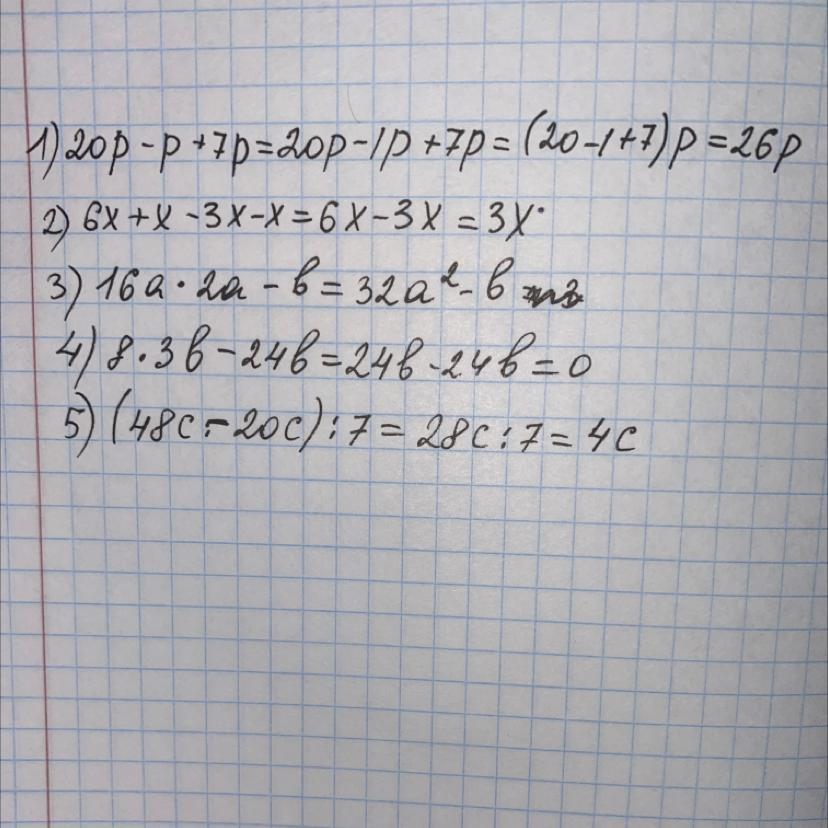 1) 20p - p + 7p = 20p - 1p + 7p = (20 - 1 + 7) p = 26p
2) 6x + x - 3x - x = 6x - 3x = 3x
3) 16a · 2a - в = 32a² - в
4) 8 · 3в - 24в = 24в - 24в = 0
5) (48c - 20c) : 7 = 28c : 7 = 4c